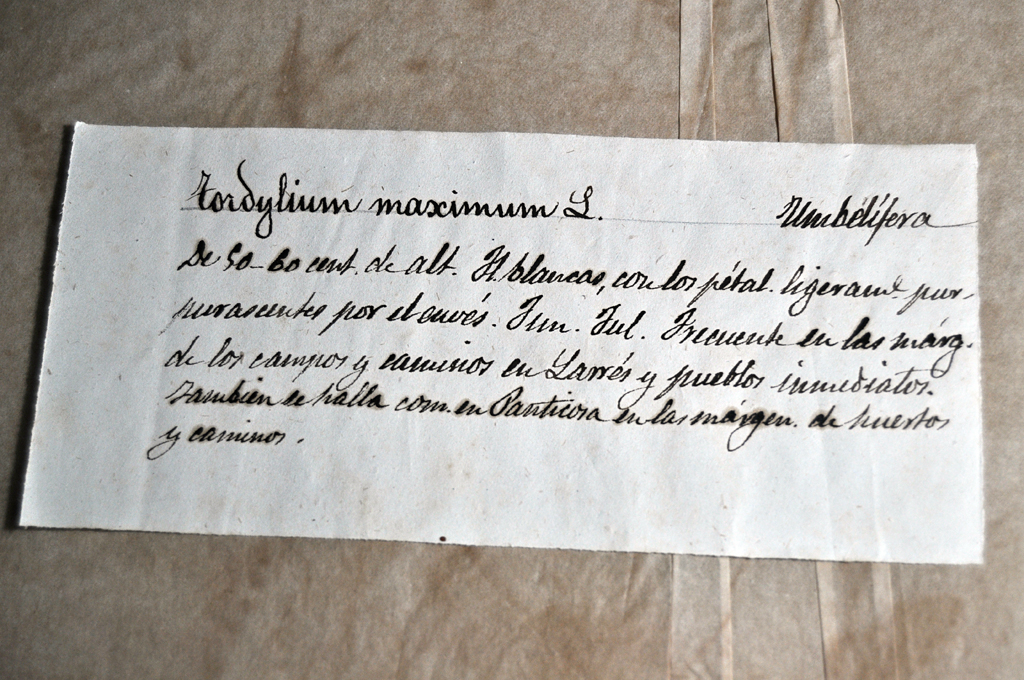 Tordylium maximum L. Umbélífera
De 50-60 cent. de alt. Fl. blancas, con los pétal. ligeramt. pur-
purascentes por el envés. Jun. Jul. Frecuente en las márg.
de los campos y caminos en Larrés y pueblos inmediatos.
Tambien se halla com. en Panticosa en las márgen. de huertos
y caminos.